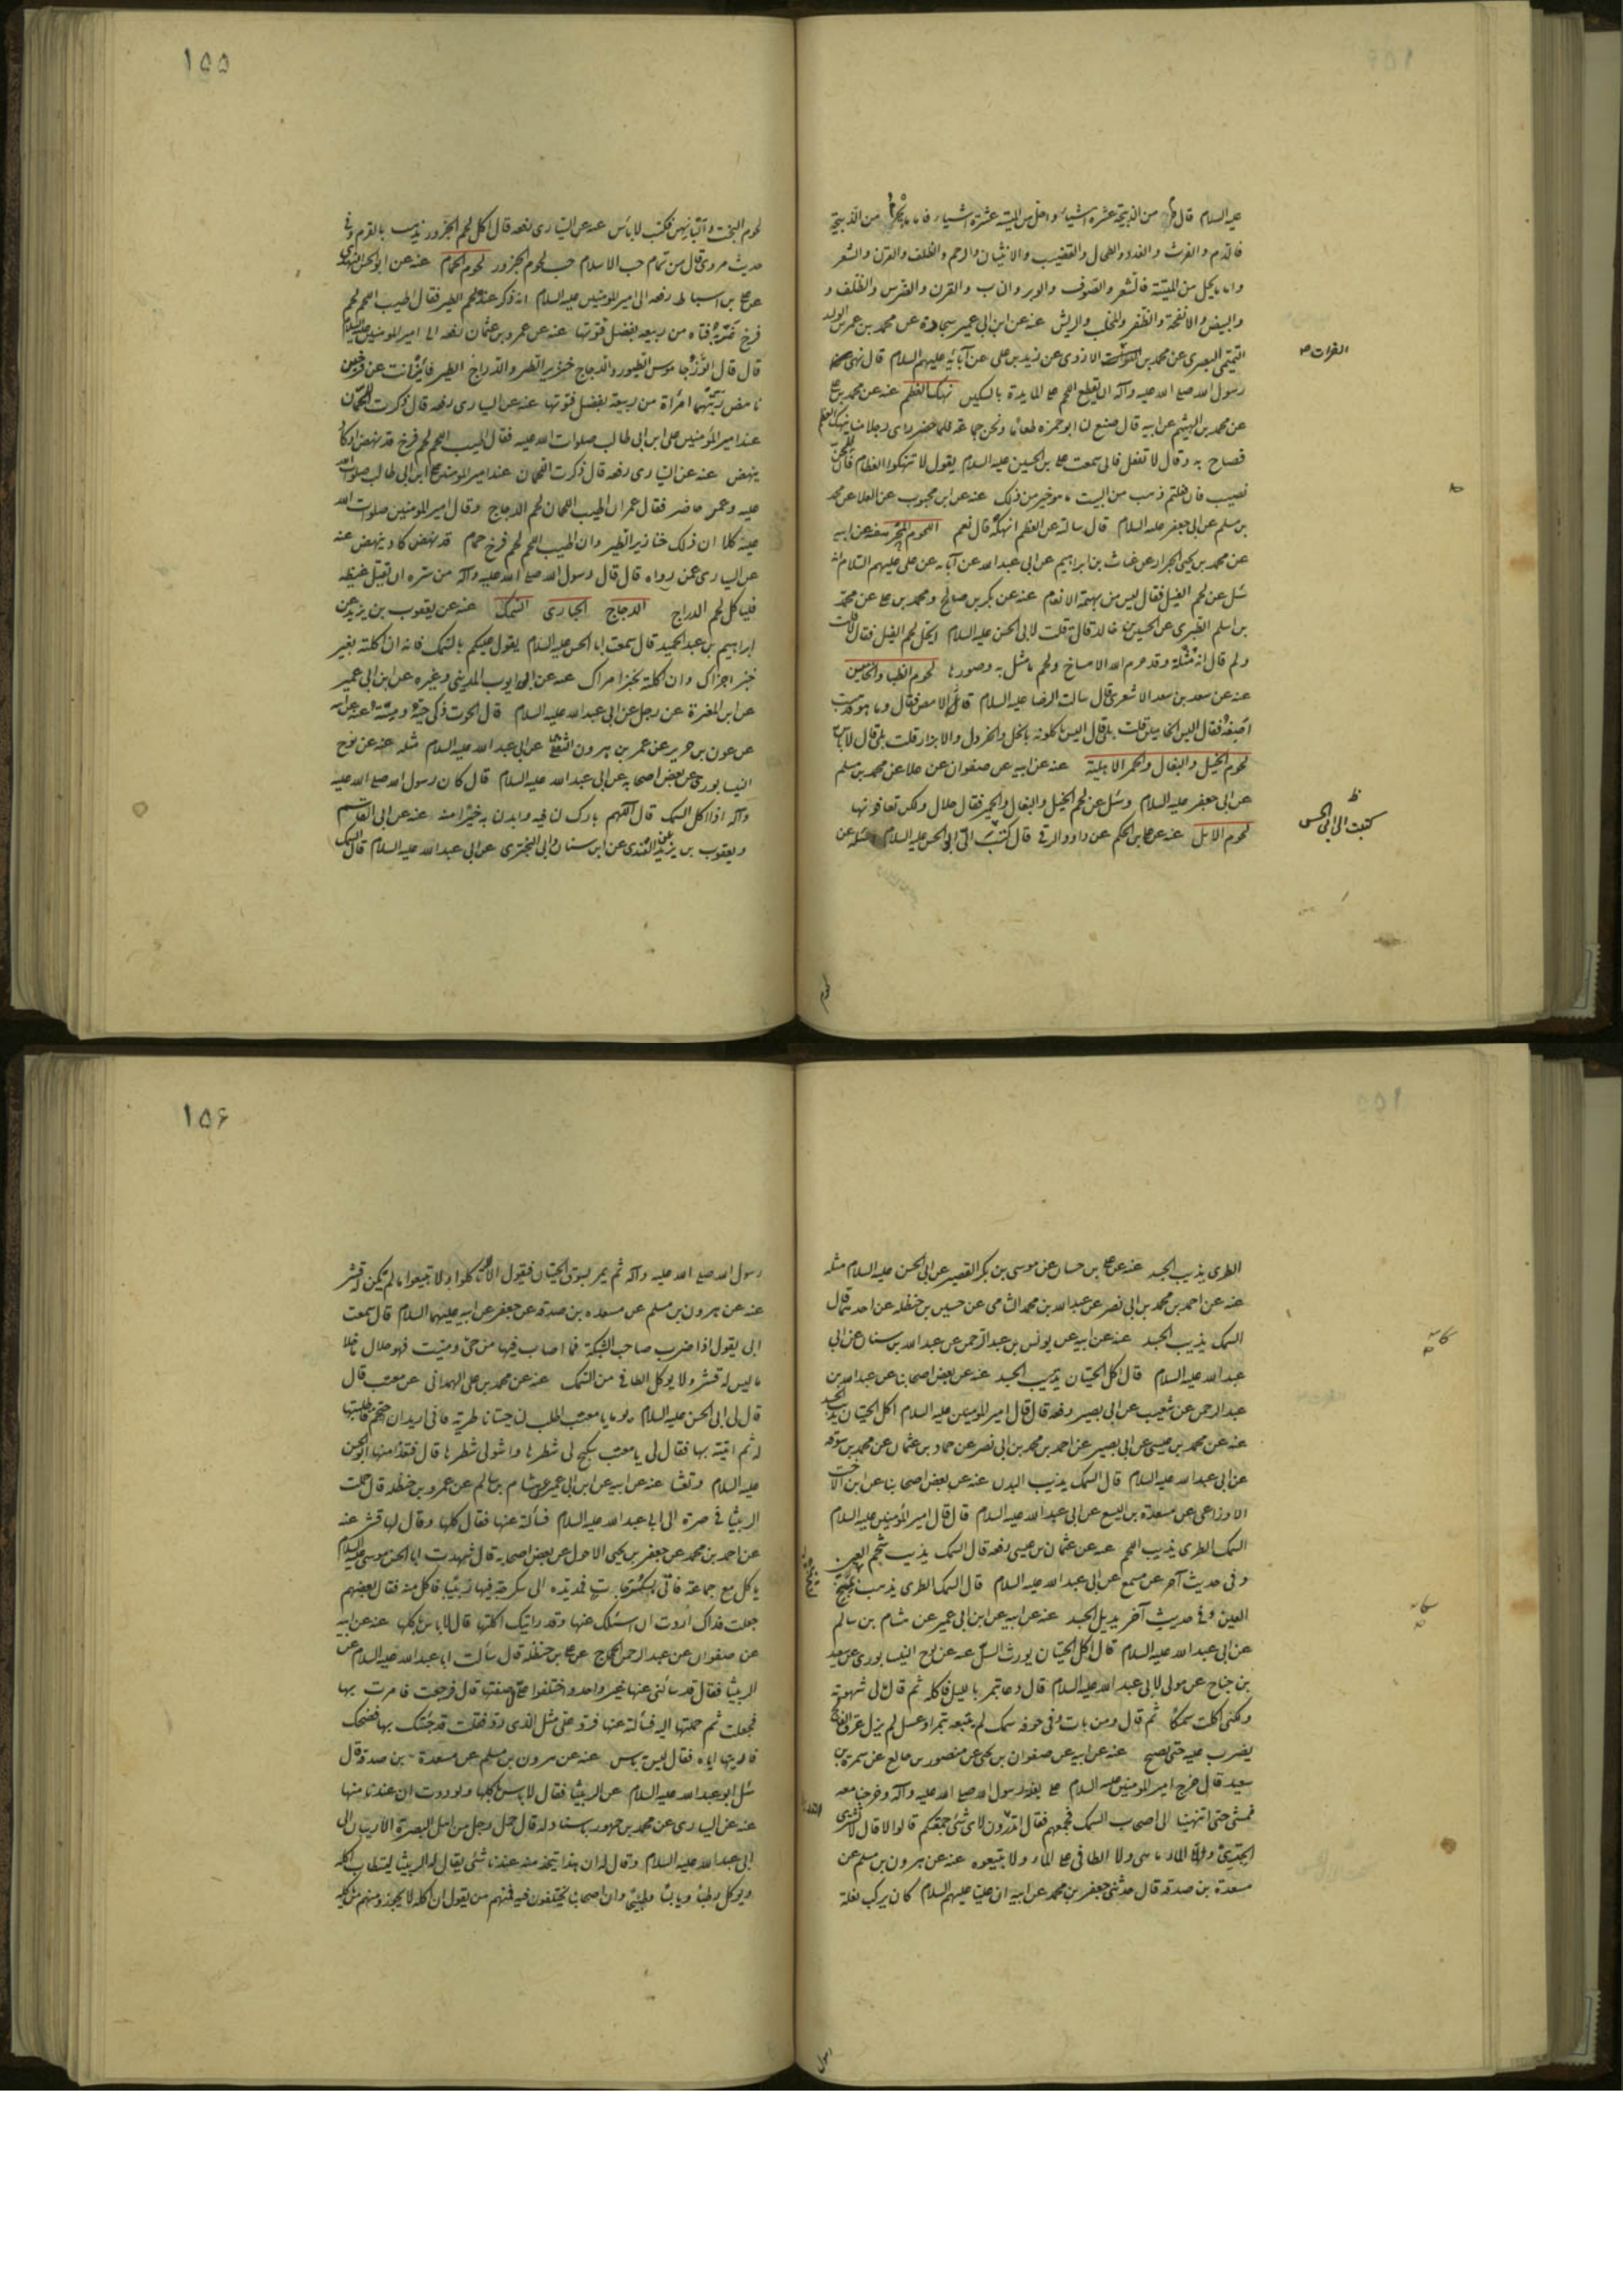 عليه السلام قال حرم من الذبيحة عشرة اشياء واحل من الميتة عشرة اشياء فاما ما يحرم من الذبيحة
فالدم والفرث والغدد والطحال والقضيب والانثيان والرحم والظلف والقرن والشعر
واما ما يحل من الميتة فالشعر والصوف والوبر والناب والقرن والضرس والظلف و
والبيض والانفحة والظفر والمخلب والريش عنه عن ابن ابى عمير سجادة عن محمد بن عمر بن الوليد
التميمى البصرى عن محمد بن الفرات الازدى عن زيد بن على عن آبائه عليهم السلام قال نهى
رسول الله صلى الله عليه وآله ان يقطع اللحم على المايدة بالسكين نهك العظم عنه عن محمد بن على
عن محمد بن الهيثم عن ابيه قال صنع لنا ابو حمزه طعاما ونحن جماعة فلما حضر راى رجلا منا ينهك العظم
فصاح به وقال لا تفعل فانى سمعت على بن الحسين عليه السلام يقول لا تنهكوا العظام فان للجن
نصيب فان فعلتم ذهب من البيت ما هو خير من ذلك عنه عن ابن محبوب عن العلا عن محمد
بن مسلم عن ابى جعفر عليه السلام قال سالته عن العظم انهكه قال نعم اللحوم المحرمة عنه عن ابيه
عن محمد بن يحيى الخزاز عن غياث بن ابراهيم عن ابى عبد الله عن آبائه عن على عليهم السلام انه
سئل عن لحم الفيل فقال ليس من بهيمة الانعام عنه عن بكر بن صالح ومحمد بن على عن محمد
بن اسلم الطبرى عن الحسين بن خالد قال قلت لابى الحسن عليه السلام ايحل لحم الفيل فقال لا قلت
ولم قال انه مثلة وقد حرم الله الامساخ ولحم ما مثل به وصورها لحوم الظبا والخامير
عنه عن سعد بن سعد الاشعرى قال سالت الرضا عليه السلام عن الامص فقال وما هو فذهبت
اصفه فقال اليس اليحامير قلت بلى قال اليس ياكلونه بالخل والخردل والابزار قلت بلى قال لا باس
لحوم الخيل والبغال والحمر الاهلية عنه عن ابيه عن صفوان عن علا عن محمد بن مسلم
عن ابى جعفر عليه السلام وسئل عن لحم الخيل والبغال والحمير فقال حلال ولكن تعافونها
لحوم الابل عنه عن على بن الحكم عن داود الرقى قال كتبت الى ابى الحسن عليه السلام اسئله عن
الفرات ص
ظ
كتبت الى ابى الحسن
لحوم
١٥٥
لحوم البخت والبانهن فكتب لا باس عنه عن السيارى رفعه قال اكل لحم الجزور يذهب بالقرم وفى
حديث مروى قال من تمام حب الاسلام حب لحوم الجزور لحوم الحمام عنه عن ابو الحسن النهدى
عن على بن اسباط رفعه الى امير المومنين عليه السلام انه ذكر عنده لحم الطير فقال اطيب اللحم لحم
فرخ غذته فتاه من ربيعه بفضل قوتها عنه عن عمرو بن عثمان رفعه الى امير المومنين عليه السلام
قال قال الاوز جاموس الطيور والدجاج خنزير الطير والدراج الطير فاين انت عن فرخين
ناهضين ربتهما امرأة من ربيعة بفضل قوتها عنه عن السيارى رفعه قال ذكرت اللحمان
عند امير المؤمنين على ابن ابى طالب صلوات الله عليه فقال اطيب اللحم لحم فرخ قد نهض او كاد
ينهض عنه عن السيارى رفعه قال ذكرت اللحمان عند امير المومنين على ابن ابى طالب صلوات الله
عليه وعمر حاضر فقال عمر ان اطيب اللحمان لحم الدجاج وقال امير المومنين صلوات الله
عليه كلا ان ذلك خنازير الطير وان اطيب اللحم لحم فرخ حمام قد نهض كاد ينهض عنه
عن السيارى عمن رواه قال قال رسول الله صلى الله عليه وآله من سره ان يقتل غيظه
فلياكل لحم الدراج الدجاج الحبارى السمك عنه عن يعقوب بن يزيد عن
ابراهيم بن عبد الحميد قال سمعت ابا الحسن عليه السلام يقول عليكم بالسمك فانه ان اكلته بغير
خبز اجزاك وان اكلته بخبز امراك عنه عن ابو ايوب المدينى وغيره عن ابن ابى عمير
عن ابن المغيرة عن رجل عن ابى عبد الله عليه السلام قال الحوت ذكى حيه وميته عنه عن ابيه
عن عون بن حريز عن عمر بن هرون الثقفى عن ابى عبد الله عليه السلام مثله عنه عن نوح
النيسابورى عن بعض اصحابه عن ابى عبد الله عليه السلام قال كان رسول الله صلى الله عليه
وآله اذا اكل السمك قال اللهم بارك لنا فيه وابدلنا به خيرا منه عنه عن ابى القاسم
ويعقوب بن يزيد عن القندى عن ابن سنان وابى البخترى عن ابى عبد الله عليه السلام قال السمك
الطرى يذيب الجسد عنه عن على بن حسان عن موسى بن بكر القصير عن ابى الحسن عليه السلام مثله
عنه عن احمد بن محمد بن ابى نصر عن عبد الله بن محمد الشامى عن حسين بن حنظله عن احدهما قال
السمك يذيب الجسد عنه عن ابيه عن يونس بن عبد الرحمن عن عبد الله بن سنان عن ابى
عبد الله عليه السلام قال اكل الحيتان يذيب الجسد عنه عن بعض اصحابنا عن عبد الله بن
عبد الرحمن عن شعيب عن ابى بصير رفعه قال قال امير المومنين عليه السلام اكل الحيتان يذيب الجسد
عنه عن محمد بن عيسى عن ابى بصير عن احمد بن محمد بن ابى نصر عن حماد بن عثمان عن محمد بن سوقه
عن ابى عبد الله عليه السلام قال السمك يذيب البدن عنه عن بعض اصحابنا عن ابن الاخت
الاوزاعى عن مسعدة بن اليسع عن ابى عبد الله عليه السلام قال قال امير المؤمنين عليه السلام
السمك الطرى يذيب اللحم عنه عن عثمان بن عيسى رفعه قال السمك يذيب شحم العين
وفى حديث آخر عن مسمع عن ابى عبد الله عليه السلام قال السمك الطرى يذهب بمخ
العين وفى حديث آخر يذبل الجسد عنه عن ابيه عن ابن ابى عمير عن هشام بن سالم
عن ابى عبد الله عليه السلام قال اكل الحيتان يورث السل عنه عن نوح النيسابورى عن سعيد
بن جناح عن مولى لابى عبد الله عليه السلام قال دعا بتمر بالليل فاكله ثم قال لى شهوته
ولكنى اكلت سمكا ثم قال ومن بات وفى جوفه سمك لم يتبعه بتمر او عسل لم يزل عرق الفالج
يضرب عليه حتى يصبح عنه عن ابيه عن صفوان بن يحيى عن منصور بن حازم عن سمرة بن
سعيد قال خرج امير المومنين عليه السلام على بغلة رسول الله صلى الله عليه وآله وخرجنا معه
نمشى حتى انتهينا الى اصحاب السمك فجمعهم فقال اتدرون لاى شئ جمعتكم قالوا لا قال لا تشتروا
الجريث ولا المارماهى ولا الطافى على الماء ولا تبيعوه عنه عن هرون بن مسلم عن
مسعدة بن صدقه قال حدثنى جعفر بن محمد عن ابيه ان عليا عليهم السلام كان يركب بغلة
رسول
١٥۶
رسول الله صلى الله عليه وآله ثم يمر بسوق الحيتان فيقول الا لا تاكلوا ولا تبيعوا ما لم يكن له قشر
عنه عن هرون بن مسلم عن مسعده بن صدقه عن جعفر عن ابيه عليهما السلام قال سمعت
ابى يقول اذا ضرب صاحب الشبكة فما اصاب فيها من حى وميت فهو حلال ما خلا
ما ليس له قشر ولا يوكل الطافى من السمك عنه عن محمد بن على الهمدانى عن معتب قال
قال لى ابى الحسن عليه السلام يوما يا معتب اطلب لنا حيتانا طرية فانى اريد ان احتجم فطلبتها
له ثم اتيته بها فقال لى يا معتب سكبج لى شطرها واشو لى شطرها قال فتغذا منها ابو الحسن
عليه السلام وتعشا عنه عن ابيه عن ابن ابى عمير عن هشام بن سالم عن عمرو بن حنظله قال حملت
الربيثا فى صرة الى ابى عبد الله عليه السلام فسألته عنها فقال كلها وقال لها قشر عنه
عن احمد بن محمد عن جعفر بن يحيى الاحول عن بعض اصحابه قال شهدت ابا الحسن موسى عليه السلام
ياكل مع جماعة فاتى بسكرجات فمد يده الى سكرجة فيها ربيثا فاكل منه فقال بعضهم
جعلت فداك اردت ان اسئلك عنها وقد رايتك اكلتها قال لا باس باكلها عنه عن ابيه
عن صفوان عن عبد الرحمن الحجاج عن على بن حنظله قال سألت ابا عبد الله عليه السلام عن
الربيثا فقال قد سألنى عنها غير واحد واختلفوا على صفتها قال فرجعت فامرت بها
فجعلت ثم حملتها اليه فسألته عنها فرد على مثل الذى رد فقلت قد جئتك بها فضحك
فاريتها اياه فقال ليس به باس عنه عن هرون بن مسلم عن مسعدة بن صدقه قال
سئل ابو عبد الله عليه السلام عن الربيثا فقال لا باس باكلها ولوددت ان عندنا منها
عنه عن السيارى عن محمد بن جمهور باسناد له قال حمل رجل من اهل البصرة الاربيان الى
ابى عبد الله عليه السلام وقال له ان هذا يتخذ منه عندنا شئ يقال له الربيثا يستطاب اكله
ويوكل رطبا ويابسا وطبيخا وان اصحابنا يختلفون فيه فمنهم من يقول ان اكله لا يجوز ومنهم من ياكله